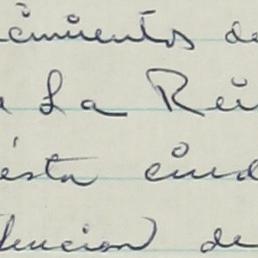 cimientos de
a La Rei
ésta ciud
dencion de